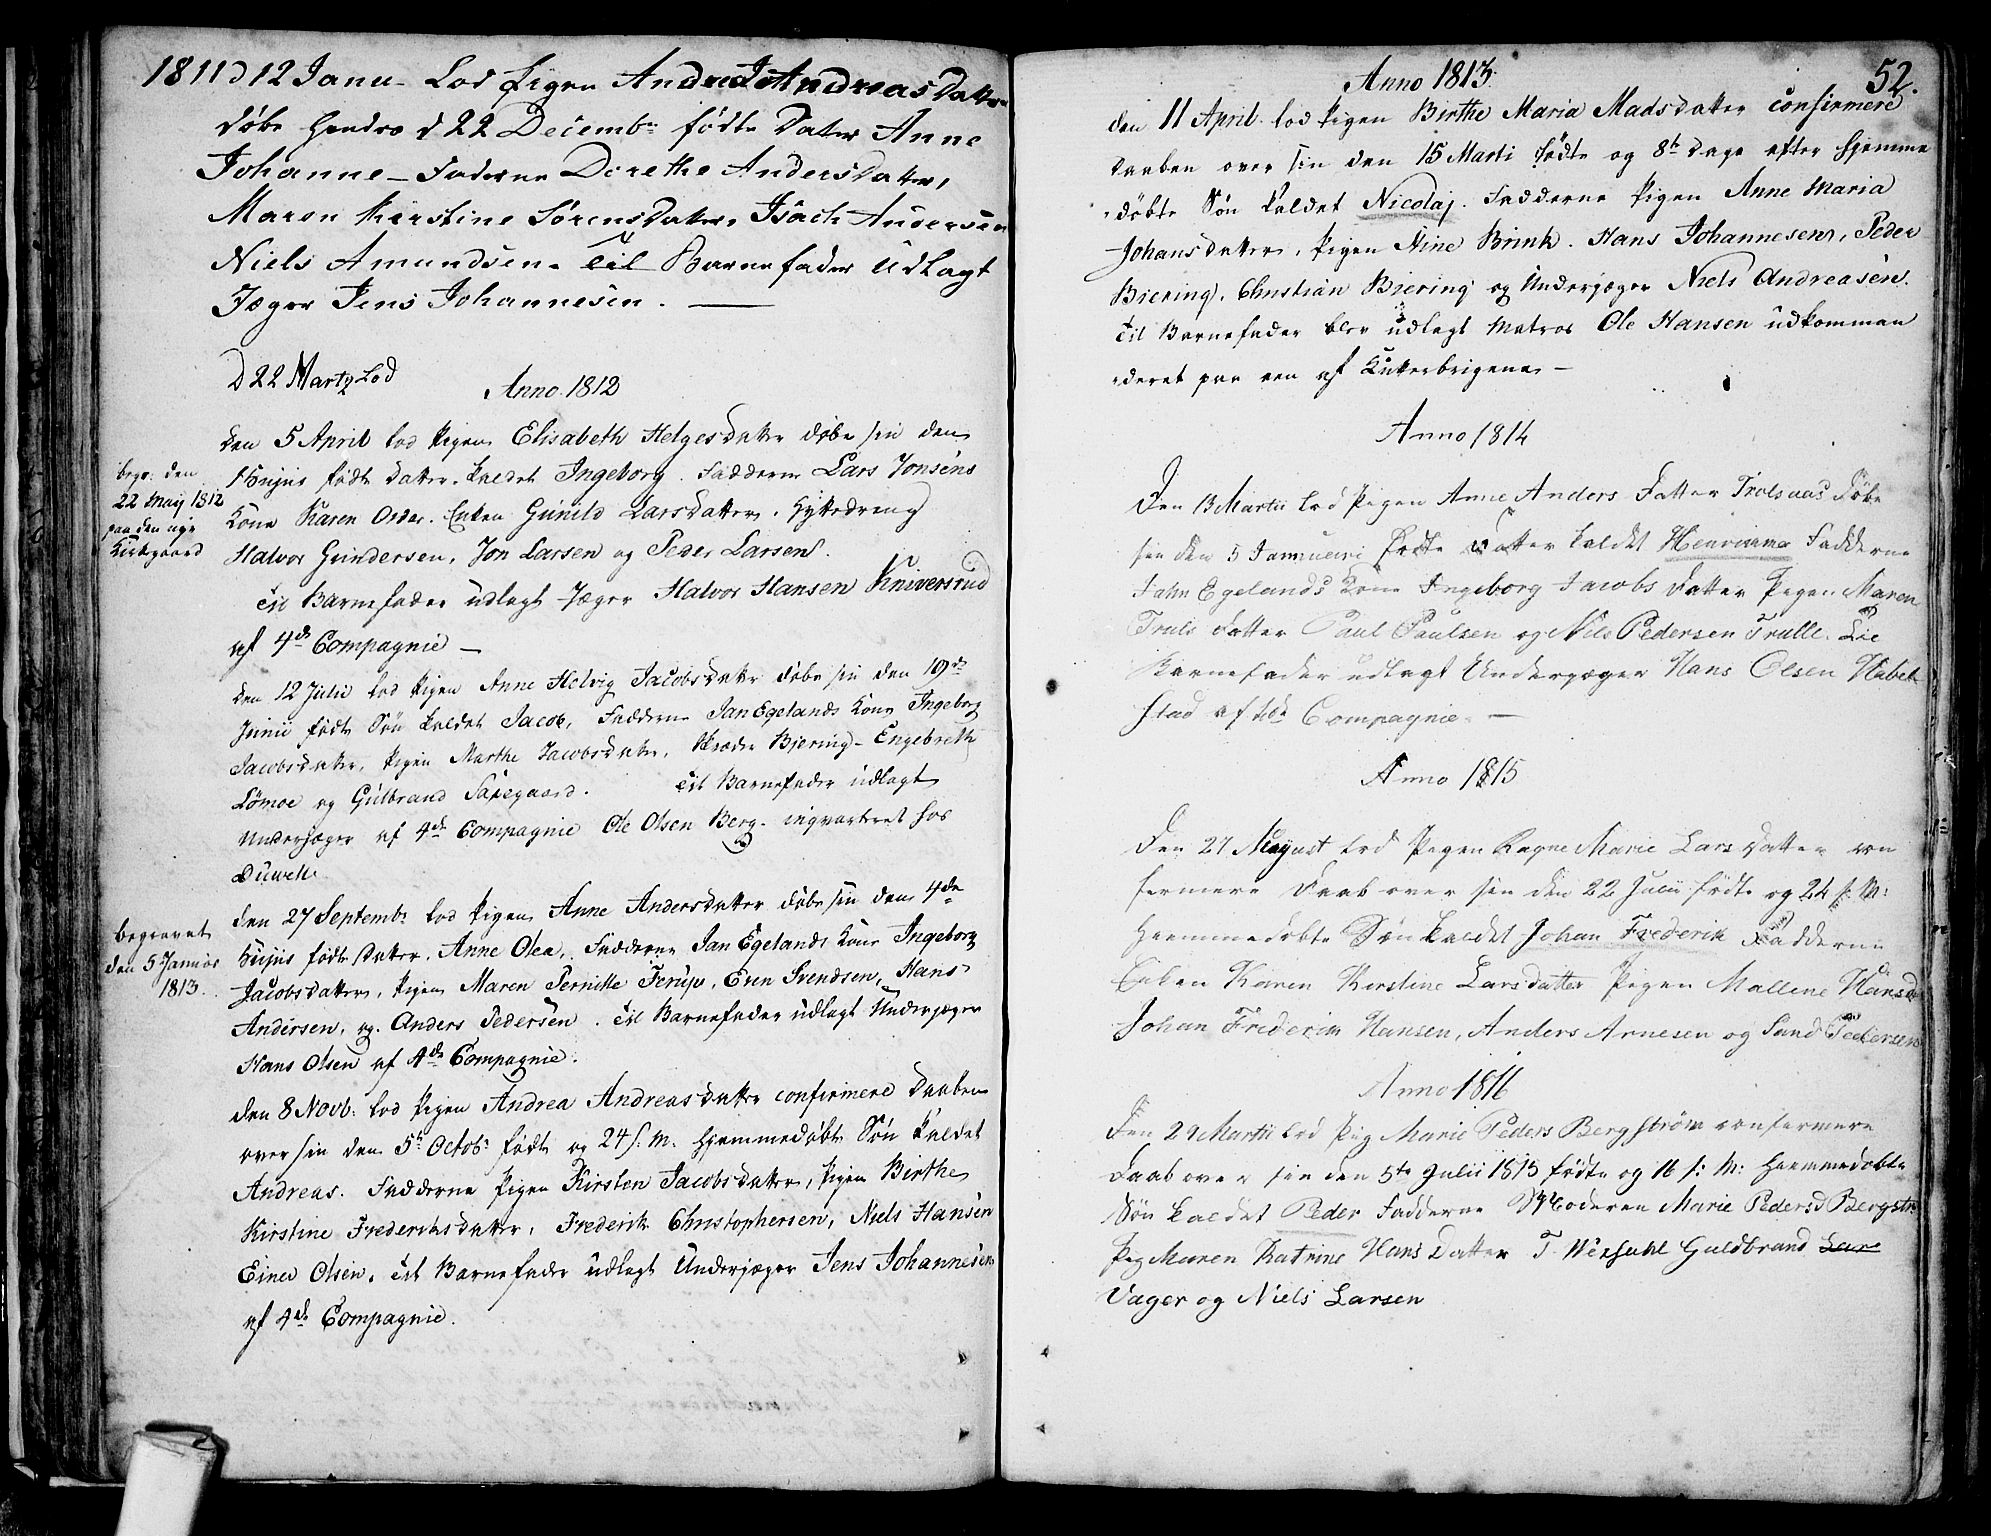 1811 d 12 Janu- Lod Pigen Andrea Andreas Datter
døbe hendes d 22 Decembr fødte Dater Anne
Johanne - Faderne Dorethe Anders Dater,
Maren Kirstine Sørens Dater, Isach Andersen
Niels Amundsen. Til Barnefader Udlagt
Jæger Jens Johannesen.
D 22 Martz Lod
Anno 1812
den 5 April lod Pigen Elisabeth Helgesdatter døbe sin den
Hujus fødte Datter, kaldet Ingeborg. Fadderne Lars Jonsens
Kone Karen Enken Gunild Larsdatter, Hyttedreng
Halvor Gundersen, Jon Larsen og Peder Larsen.
Til Barnefader udlagt Jæger Halvor Hansen Kniversrud
af 4de Compagnie -
begr: den
22 Maij 1812
paa den nye
Kirkgaard
den 12 Julii lod Pigen Anne Helvig Jacobsdatter døbe sin den 19de
Junii fødte Søn kaldet Jacob, Fadderne Jan Egelands Kone Ingeborg
Jacobsdatter, Pigen Marthe Jacobsdatter, Skræder Bjering - Engebreth
Lömoe og Gulbrand Saxegaard. Til Barnefader udlagt
Underjæger af 4de Compagnie Ole Olsen Berg. inqvarteret hos
Duwell.
den 27 Septembr lod Pigen Anne Andersdatter døbe sin den 4de
Hujus fødte Datter, Anne Olea, Fadderne Jan Egelands Kone Ingeborg
Jacobsdatter, Pigen Maren Pernille Ferup, Even Svendsen, Hans
Andersen, og Anders Pedersen. Til Barnefader udlagt Underjæger
Hans Olsen af 4de Compagnie.
begravet
den 5 Januar
1813.
den 8 Novb: lod Pigen Andrea Andreasdatter confirmere Daaben
over sin den 5te Octobr født og 24 s. M. Hjemmedøbt Søn kaldet
Andreas. Fadderne Pigen Kirsten Jacobsdatter, Pigen Birthe
Kirstine Frederiksdatter, Frederik Christophersen, Niels Hansen
Einer Olsen. Til Barnefader udlagt Underjæger Jens Johannesen
af 4de Compagnie.
52.
Anno 1813
den 11 April lod Pigen Birthe Maria Madsdatter confirmere
Daaben over sin den 15 Marti fødte og 8te Dage efter hjemme
døbte Søn kaldet Nicolaj. Fadderne Pigen Anne Maria
Johansdatter, Pigen Stine Brink. Hans Johannesen, Peder
Biering, Christian Biering og Underjæger Niels Andreasen.
Til Barnefader blev udlagt Matros Ole Hansen udkomman
deret paa een af Kutterbrigene -
Anno 1814
Den 13 Martii lod Pigen Anne Anders Datter Trolsaas Døbe
sin den 5 Januari fødte Datter kaldet Henriana Fadderne
Jahn Egelands Kone Ingeborg Jacobs Datter Pigen Maren
Truls Datter Paul Paulsen og Nils Pedersen Trulle. Til
Barnefader udlagt Underjæger Hans Olsen Habel
stad af 4de Compagnie. -
Anno 1815
Den 27 August lod Pigen Ragne Marie Lars Datter con
fermere Daab over sin den 22 Julii fødte og 24 s: M:
Hiemmedøbte Søn kaldet Johan Frederik Fadderne
Enken Karen Kirstine Larsdatter Pigen Mallene Hansd
Johan Frederik Hansen, Anders Arnesen og Sand Pedersen
Anno 1816
Den 29 Martii lod Pig Marie Peders Bergstrøm confermere
Daab over sin den 5te Julii 1815 fødte og 16 s: M: Hiemmedøbte
Søn kaldet Peder Fadderne Moderen Marie Pedersd Bergstr
Pig Maren Katrine Hans Datter T. Guldbrand Lars
Vager og Niels Larsen